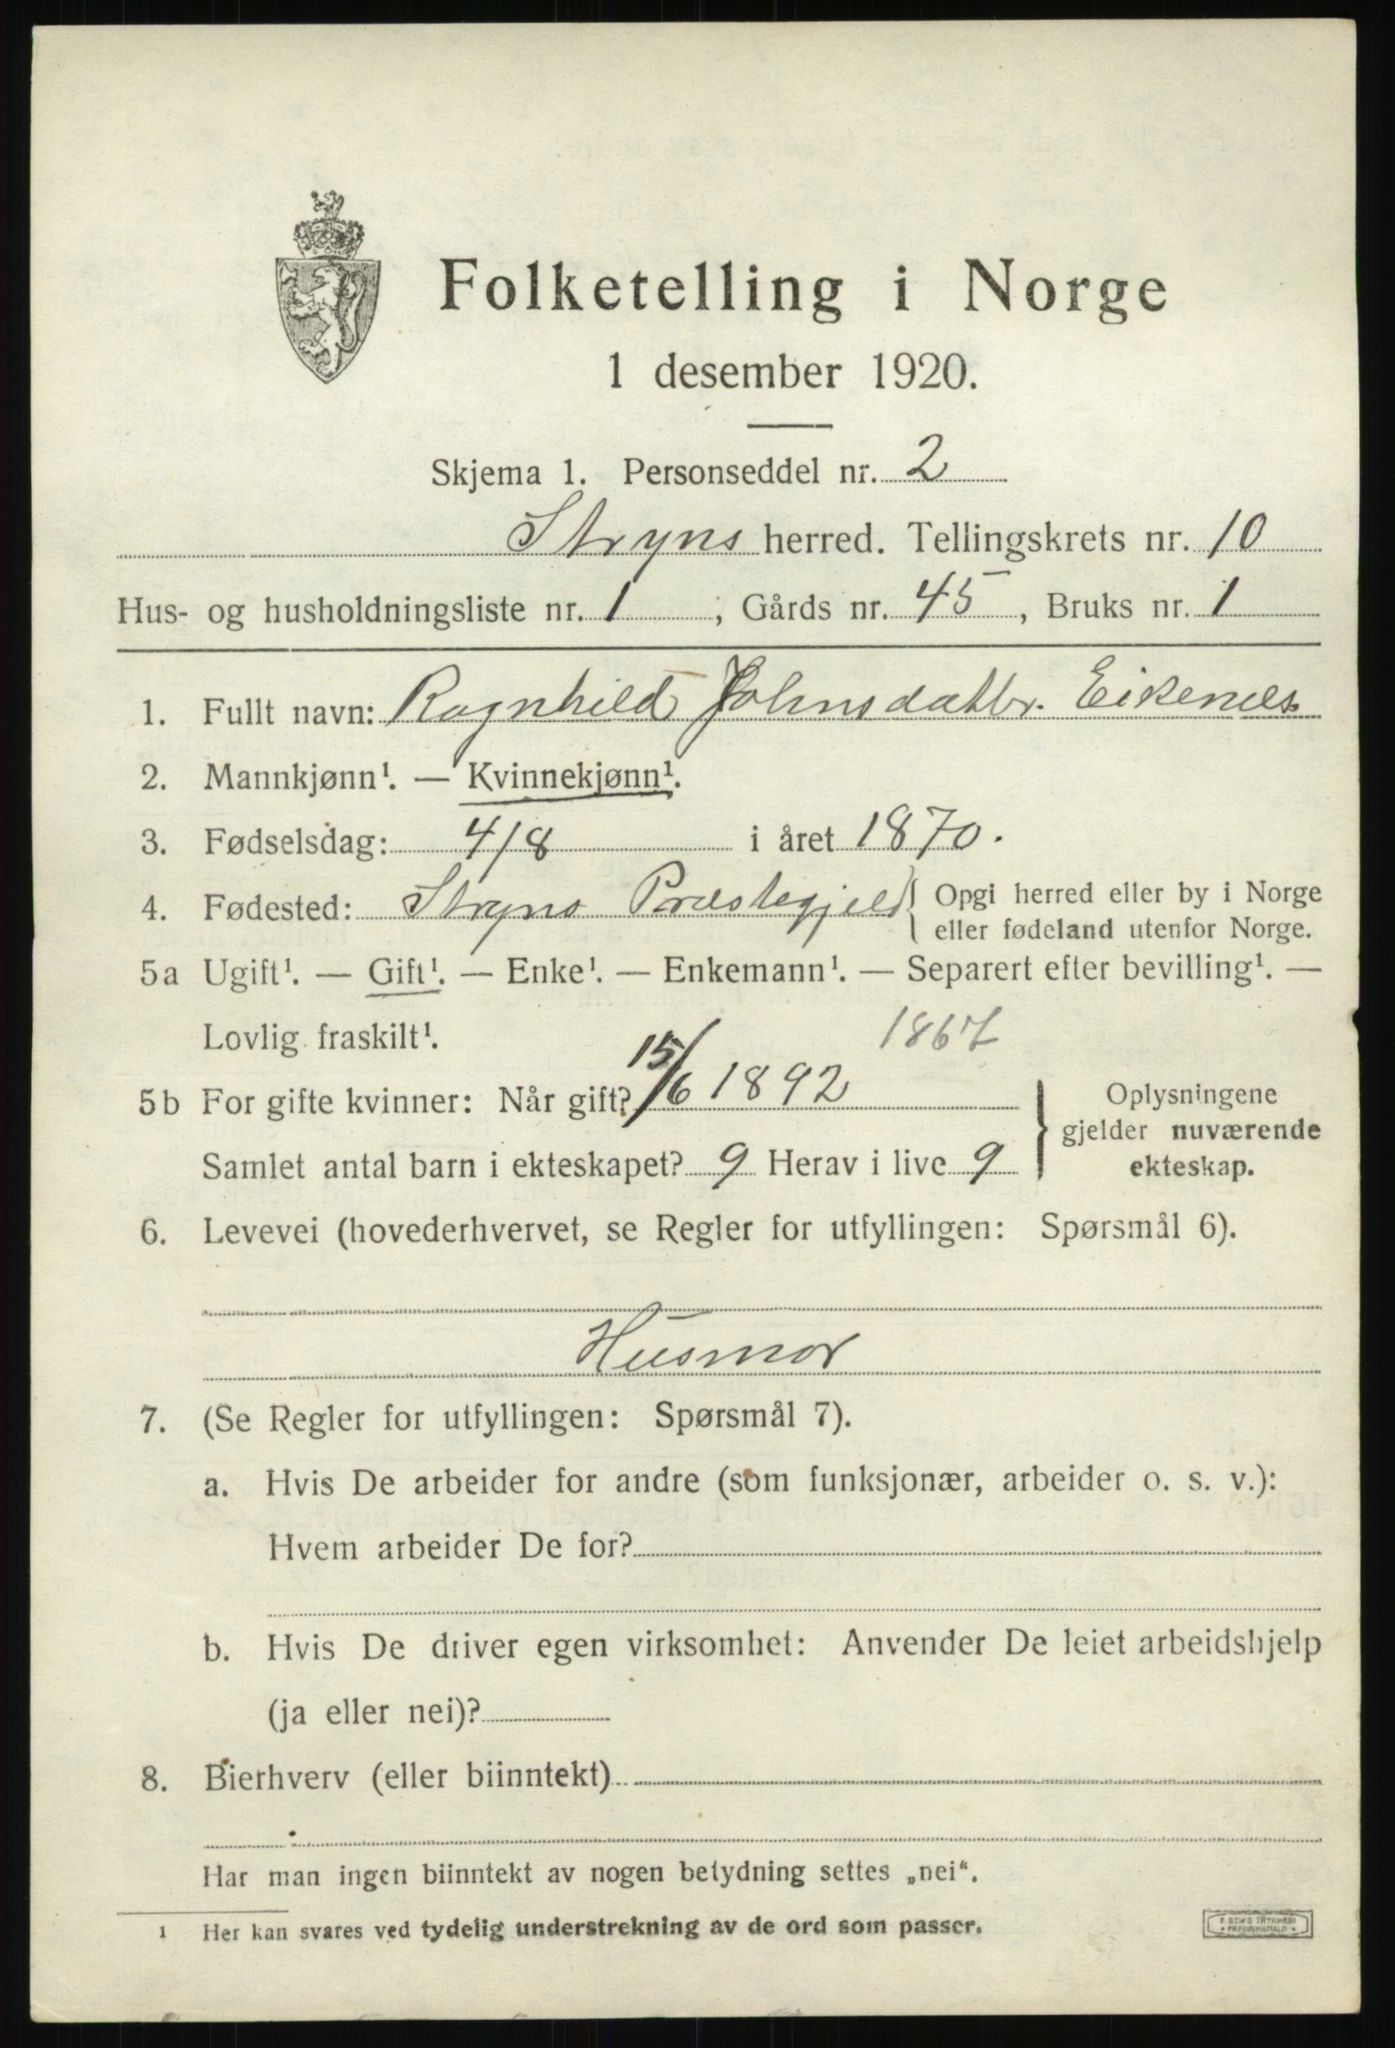 Folketelling i Norge
1 desember 1920.
Skjema 1. Personseddel nr. 2
Stryns herred. Tellingskrets nr. 10
Hus- og husholdningsliste nr. 1, Gårds nr. 45, Bruks nr. 1
1. Fullt navn: Ragnhild Johnsdattr. Eikenes
2. Mannkjønn¹. — Kvinnekjønn¹.
3. Fødselsdag: 4/8 i året 1870.
4. Fødested: Stryns Præstegjeld { Opgi herred eller by i Norge
eller fødeland utenfor Norge.
5a Ugift¹. — Gift¹. — Enke¹. — Enkemann¹. — Separert efter bevilling¹. —
Lovlig fraskilt¹. 1867
5b For gifte kvinner: Når gift? 15/6 1892
Samlet antal barn i ekteskapet? 9 Herav i live 9
} Oplysningene
gjelder nuværende
ekteskap.
6. Levevei (hovederhvervet, se Regler for utfyllingen: Spørsmål 6).
Husmor
7. (Se Regler for utfyllingen: Spørsmål 7).
a. Hvis De arbeider for andre (som funksjonær, arbeider o. s. v.):
Hvem arbeider De for?
b. Hvis De driver egen virksomhet: Anvender De leiet arbeidshjelp
(ja eller nei)?
8. Bierhverv (eller biinntekt)
Har man ingen biinntekt av nogen betydning settes „nei“.
1 Her kan svares ved tydelig understrekning av de ord som passer.